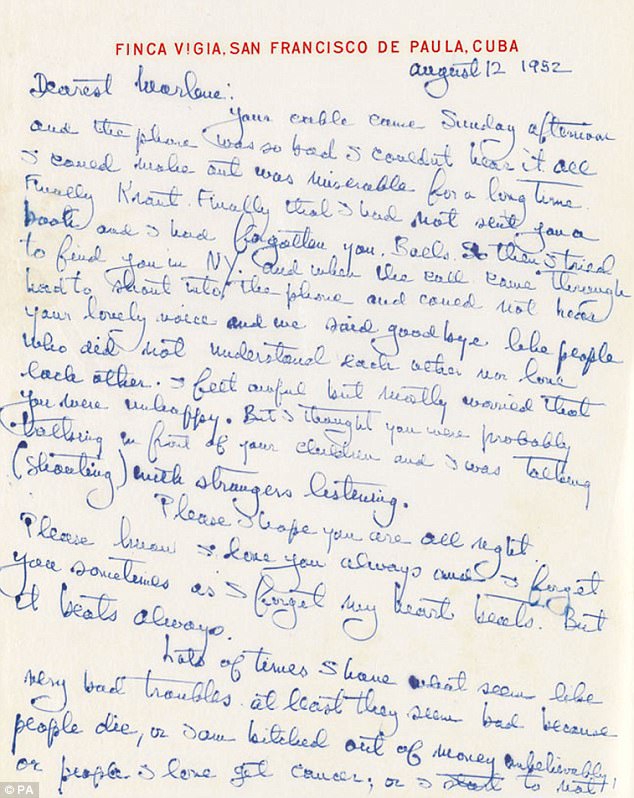 FINCA VIGIA, SAN FRANCISCO DE PAULA, CUBA
August 12 1952
Dearest Marlene:
Your cable came Sunday afternoon
and the phone was so bad I couldnt hear it. all
I could make out was miserable for a long time.
Finally Kraut. Finally that I had not sent you a
book and I had forgotten you. Balls. So then I tried
to find you in NY. and when the call came through
had to shout into the phone and could not hear
your lovely voice and we said goodbye like people
who did not understand each other nor love
each other. I felt awful but mostly worried that
you were unhappy. But I thought you were probably
talking in front of your children and I was talking
(shouting) with strangers listening.
Please I hope you are all right.
Please know I love you always and I forget
you sometimes as I forget my heart beats. But
it beats always.
Lots of times I have what seem like
very bad troubles. at least they seem bad because
people die, or I am bitched out of money unbelievably,
or people I love get cancer; or I start to not
© PA